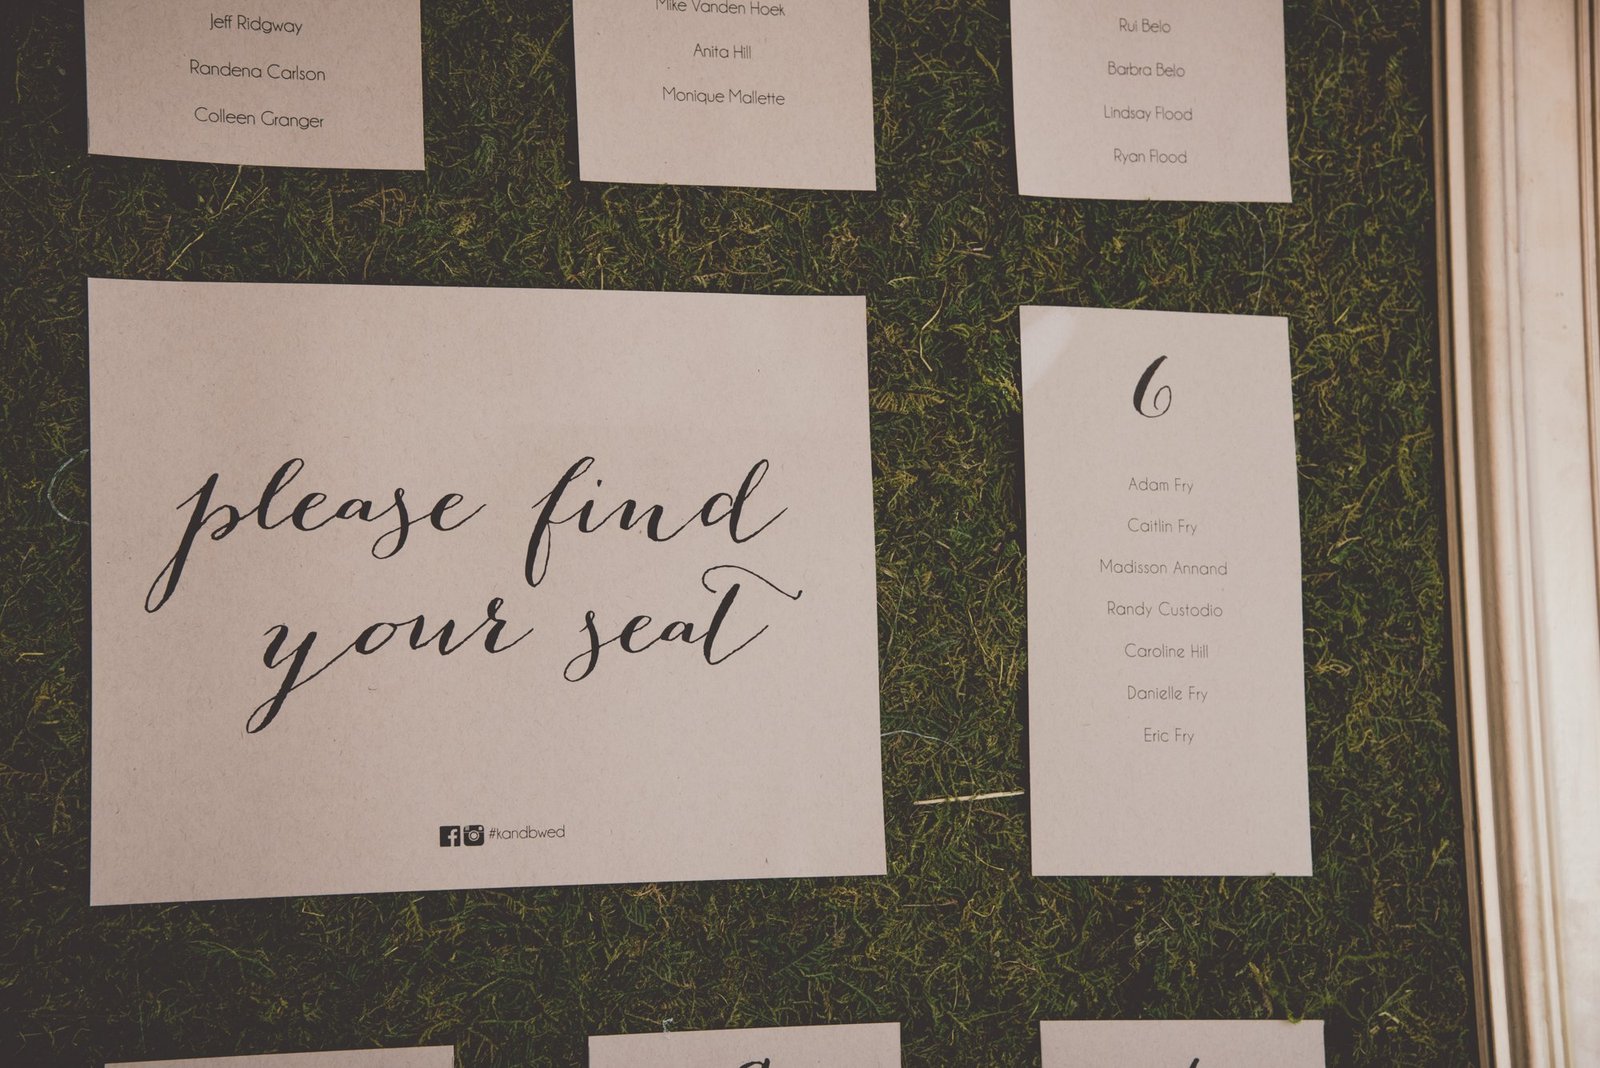 Jeff Ridgway
Randena Carlson
Colleen Granger
Mike Vanden Hoek
Anita Hill
Monique Mallette
Rui Belo
Barbra Belo
Lindsay Flood
Ryan Flood
please find
your seat
#kandbwed
6
Adam Fry
Caitlin Fry
Madisson Annand
Randy Custodio
Caroline Hill
Danielle Fry
Eric Fry